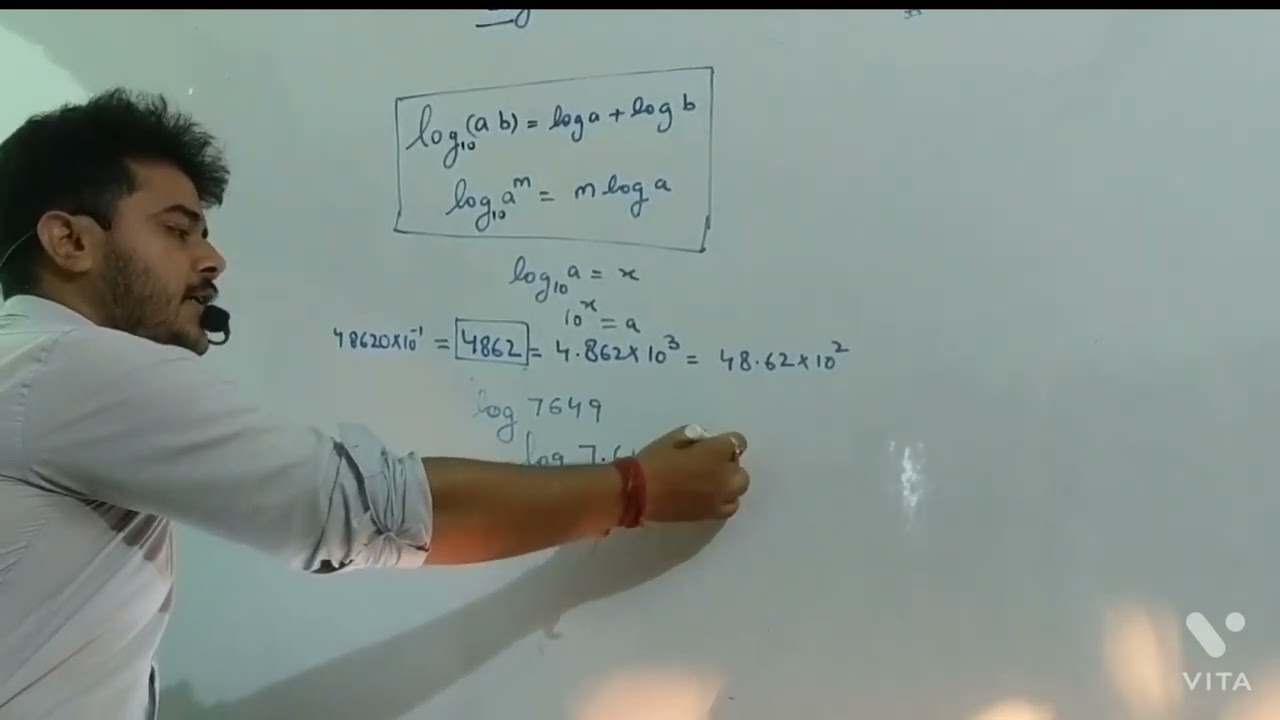 log₁₀(a b) = log a + log b
log₁₀ aᵐ = m log a
log₁₀ a = x
10ˣ = a
48620×10⁻¹ = 4862 = 4.862×10³ = 48.62×10²
log 7649
log 7.6
VITA